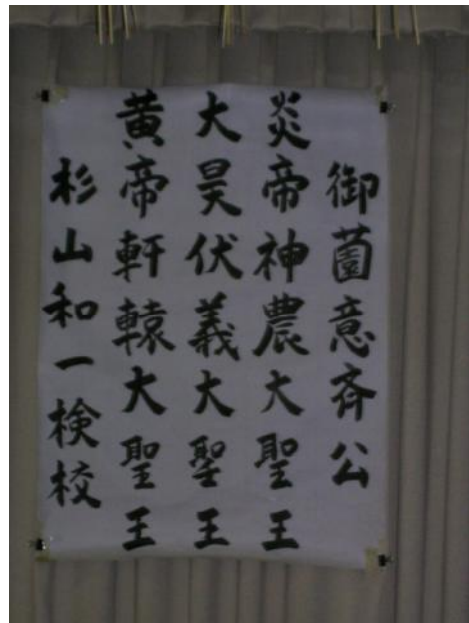 御薗意斉公
炎帝神農大聖王
大昊伏義大聖王
黄帝軒轅大聖王
杉山和一検校